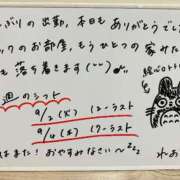 がりの出勤、本日も ありがとうでし
ックのお部屋、もうひとつの家みた
も落ち着きます(¨)
週のシフト
9/2(火) 12-ラスト
9/4(木) 17-ラスト
はまた! おやすみなさい〜zzz